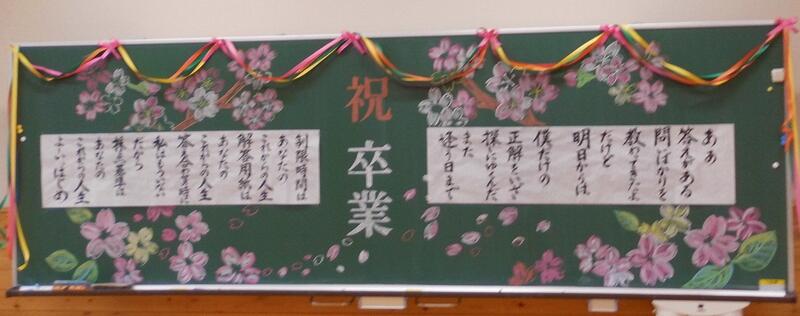 あぁ
答えがある
問いばかりを
教わってきたよ
だけど
明日からは
僕だけの
正解をいざ
探しにゆくんだ
また
逢う日まで
祝卒業
制限時間は
あなたの
これからの人生
解答用紙は
あなたの
これからの人生
答え合わせの時に
私はもういない
だから
採点基準は
あなたの
これからの人生
よーいはじめ